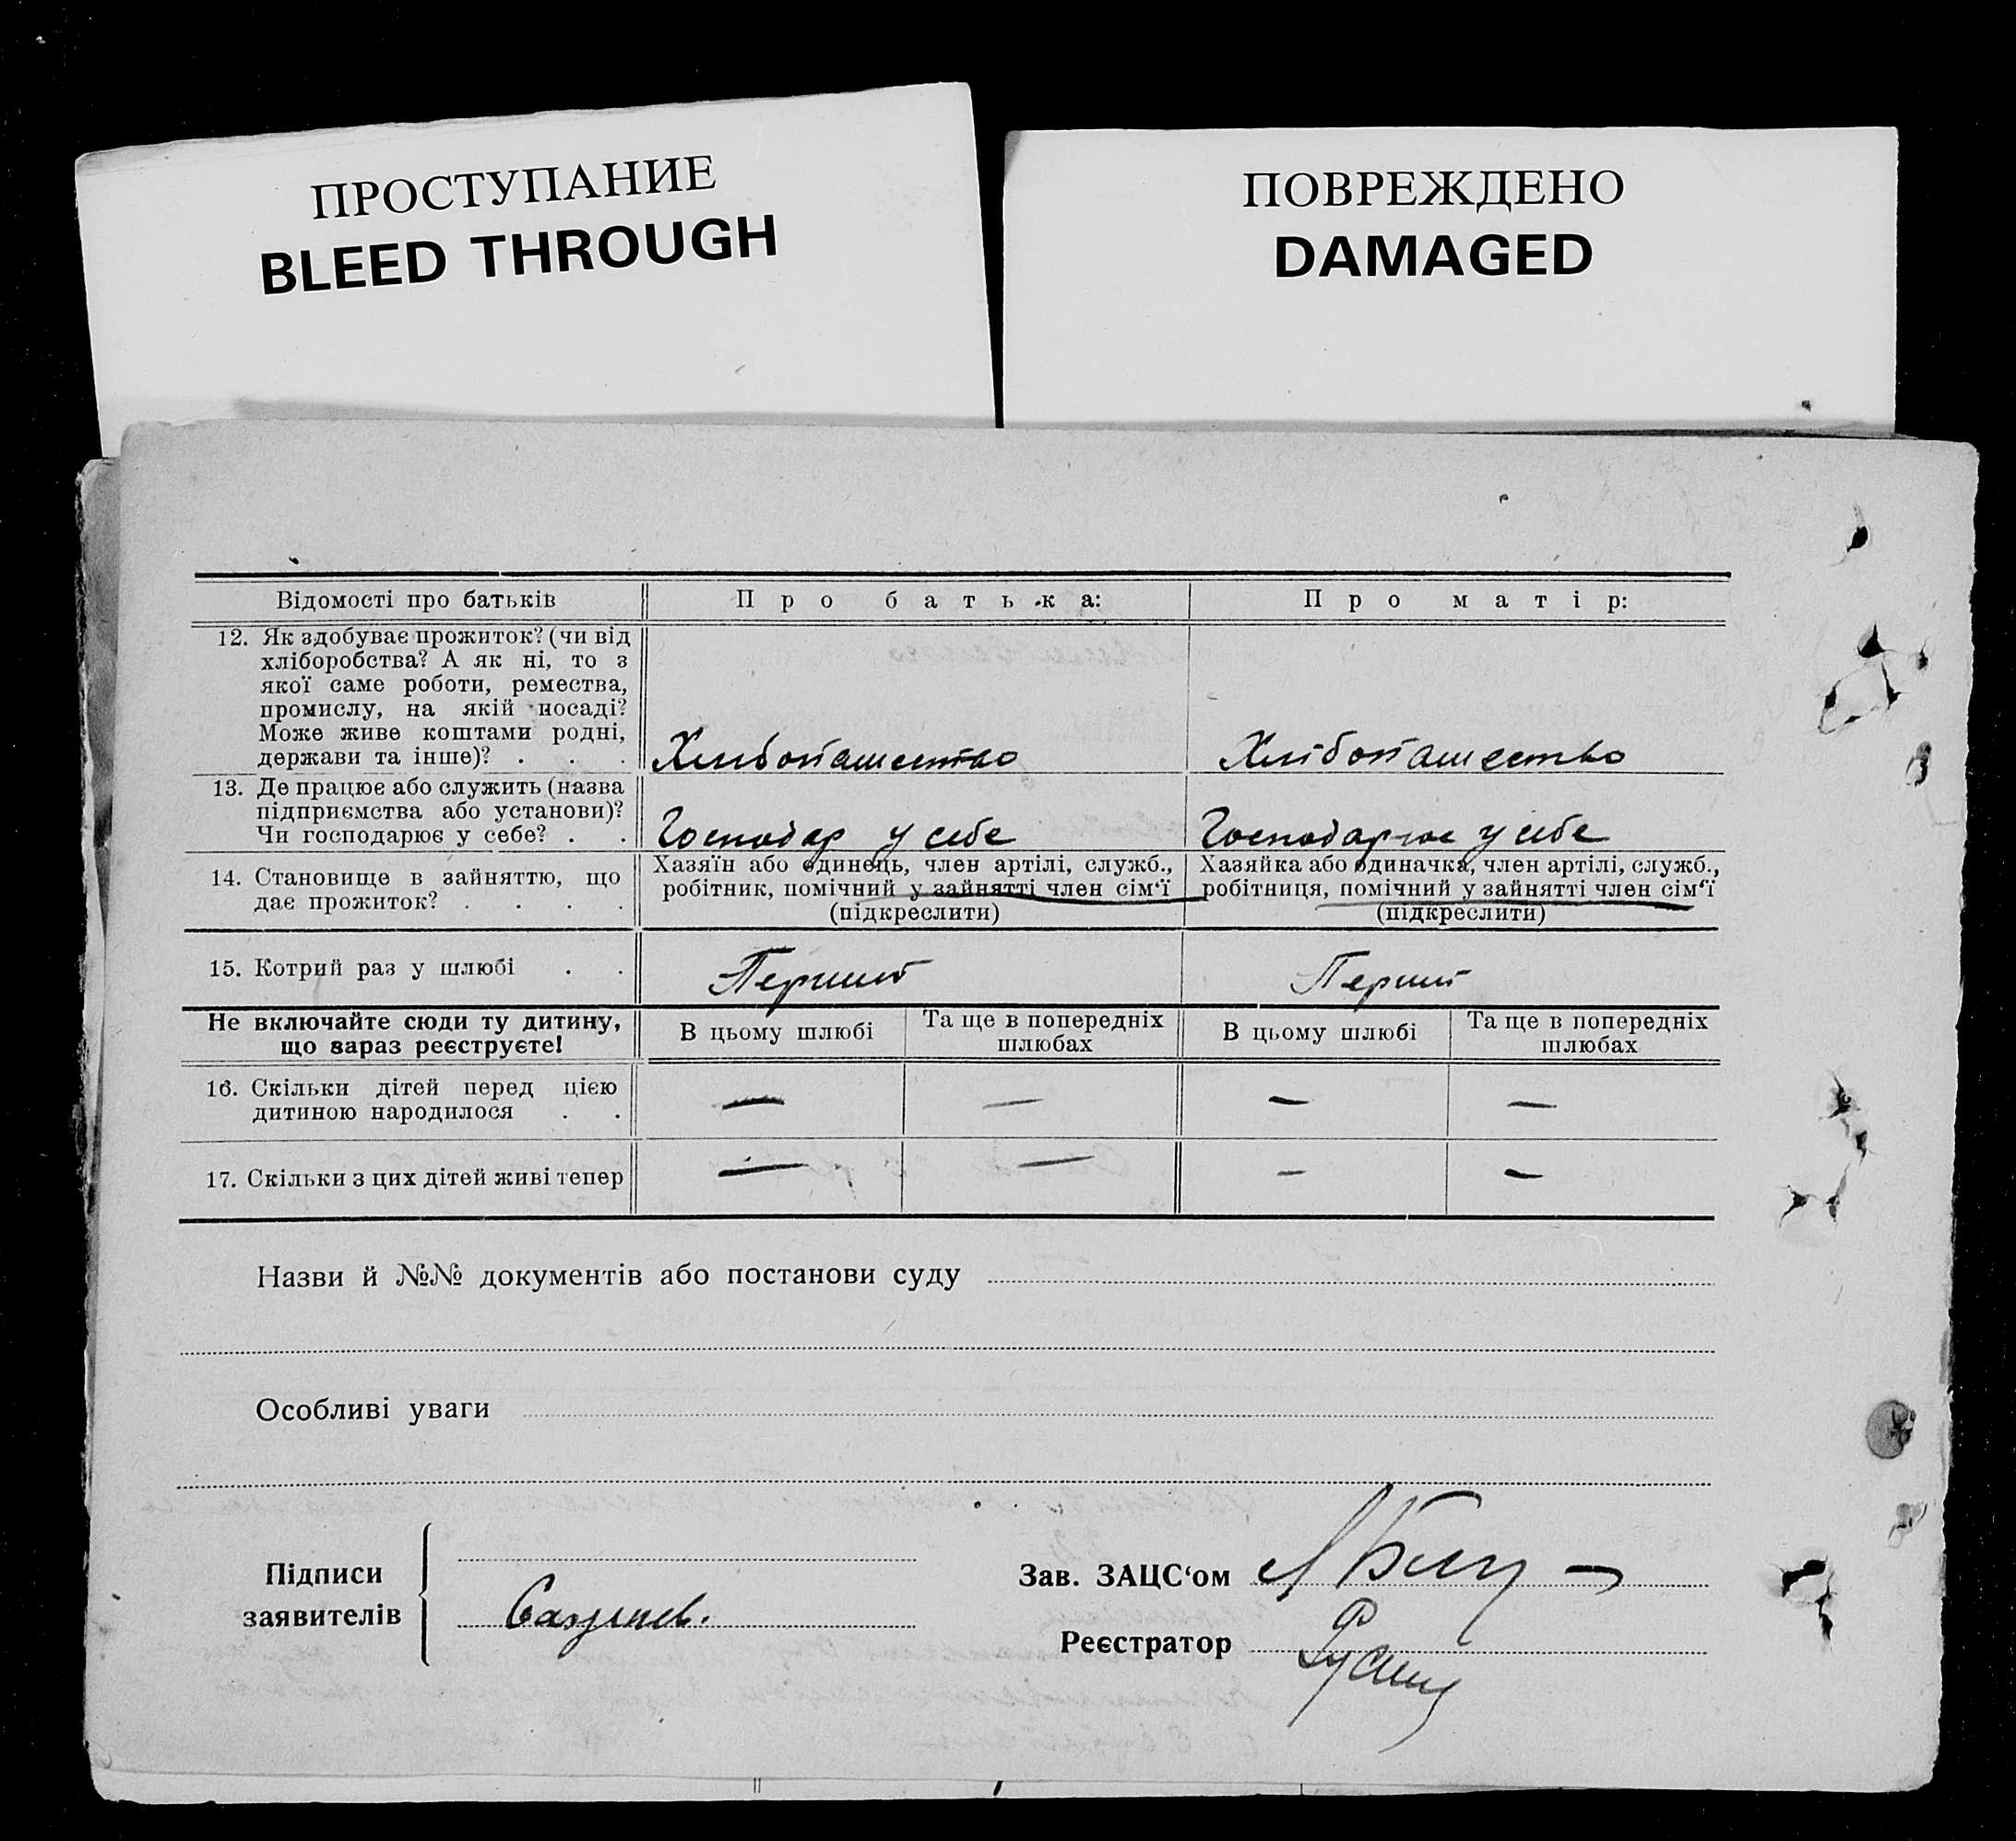 ПРОСТУПАНИЕ
BLEED THROUGH
ПОВРЕЖДЕНО
DAMAGED
Відомості про батьків
Про батька:
Про матір:
12. Як здобуває прожиток? (чи від
хліборобства? А як ні, то з
якої саме роботи, ремества,
промислу, на якій посаді?
Може живе коштами родні,
держави та інше)? . . .
Хлібопашество
Хлібопашество
13. Де працює або служить (назва
підприємства або установи)?
Чи господарює у себе? . .
Господар у себе
Господарює у себе
14. Становище в зайняттю, що
дає прожиток? . . . .
Хазяїн або одинець, член артілі, служб.,
робітник, помічний у зайнятті член сім‘ї
(підкреслити)
Хазяйка або одиначка, член артілі, служб.,
робітниця, помічний у зайнятті член сім‘ї
(підкреслити)
15. Котрий раз у шлюбі . .
Перший
Перший
Не включайте сюди ту дитину,
що зараз реєструєте!
В цьому шлюбі
Та ще в попередніх
шлюбах
В цьому шлюбі
Та ще в попередніх
шлюбах
16. Скільки дітей перед цією
дитиною народилося . .
— — — —
17. Скільки з цих дітей живі тепер
— — — —
Назви й №№ документів або постанови суду
Особливі уваги
Підписи
заявителів
Зав. ЗАЦС‘ом
Реєстратор